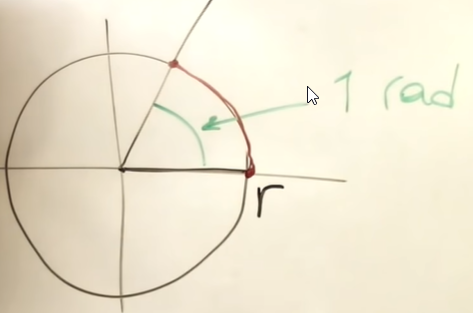 1 rad
r